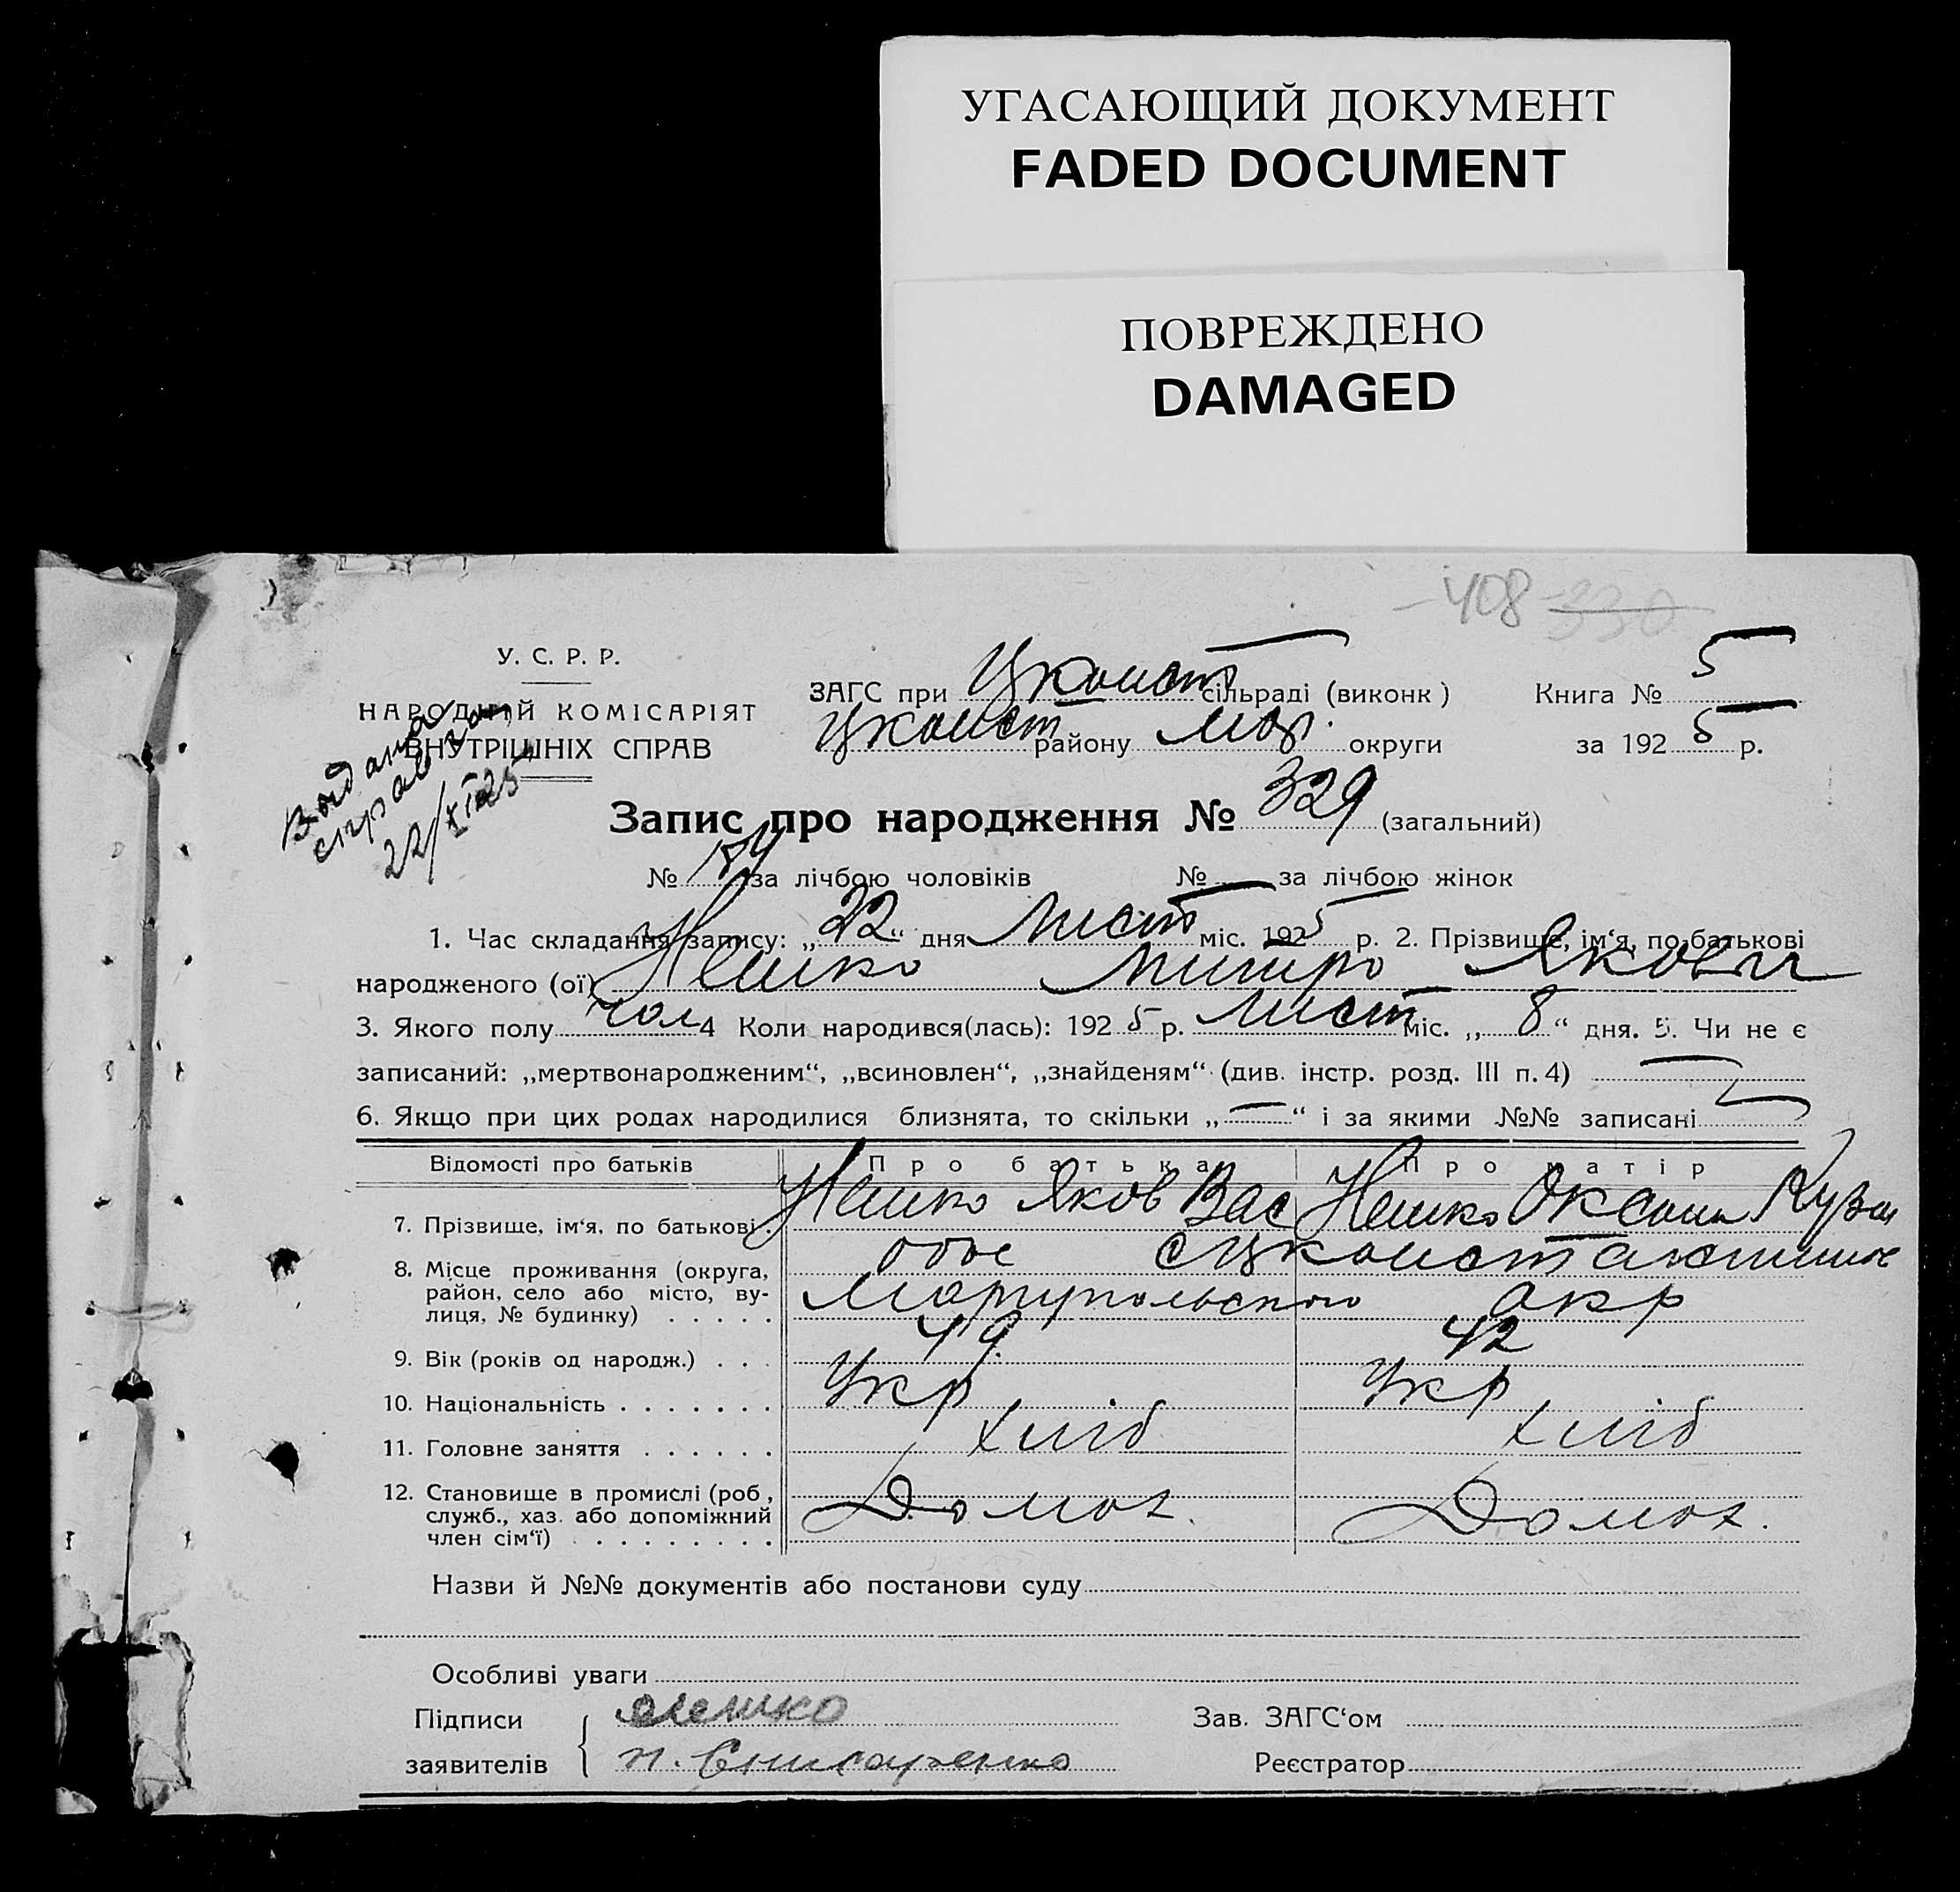 УГАСАЮЩИЙ ДОКУМЕНТ
FADED DOCUMENT
ПОВРЕЖДЕНО
DAMAGED
408 330
У. С. Р. Р.
НАРОДНІЙ КОМІСАРІЯТ
ВНУТРІШНІХ СПРАВ
Видана
справка
22/XI 25
ЗАГС при Цконст сільраді (виконк) Книга № 5
Цконст району Мар. округи за 1925 р.
Запис про народження № 329 (загальний)
№ 184 за лічбою чоловіків № — за лічбою жінок
1. Час складання запису: „22“ дня Лист міс. 1925 р. 2. Прізвище, ім‘я, по батькові
народженого (ої) Нешко Митро Якович
3. Якого полу чол 4 Коли народився(лась): 1925 р. Лист міс. „8“ дня. 5. Чи не є
записаний: „мертвонародженим“, „всиновлен“, „знайденям“ (див. інстр. розд. III п. 4) —
6. Якщо при цих родах народилися близнята, то скільки „—“ і за якими №№ записані
Відомості про батьків Про батька Про матір
7. Прізвище, ім‘я, по батькові Нешко Яков Вас Нешко Оксана Кузм
8. Місце проживання (округа, район, село або місто, вулиця, № будинку) обоє с Цконстантинов
Марупольского окр
9. Вік (років од народж.) 49 42
10. Національність Укр Укр
11. Головне заняття хліб хліб
12. Становище в промислі (роб., служб., хаз. або допоміжний член сім‘ї) Домог. Домог.
Назви й №№ документів або постанови суду
Особливі уваги
Підписи Зав. ЗАГС‘ом
заявителів Реєстратор